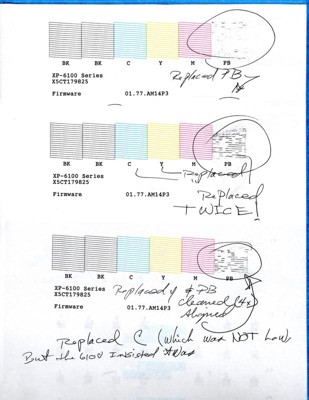 BK BK C Y M PB
XP-6100 Series
X5CT179825
Replaced PB
Firmware 01.77.AM14P3
BK BK C Y M PB
XP-6100 Series
X5CT179825
Replaced
Firmware 01.77.AM14P3
Replaced
TWICE!
BK BK C Y M PB
XP-6100 Series
X5CT179825
Replaced Y & PB
Cleaned (4x)
Firmware 01.77.AM14P3
Aligned
Replaced C (which was NOT Low,
But the 6100 Insisted it was